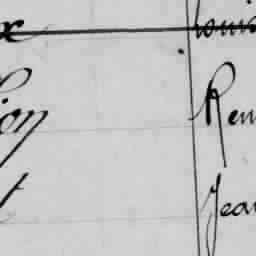 x Louis
ion Rem
t Jean